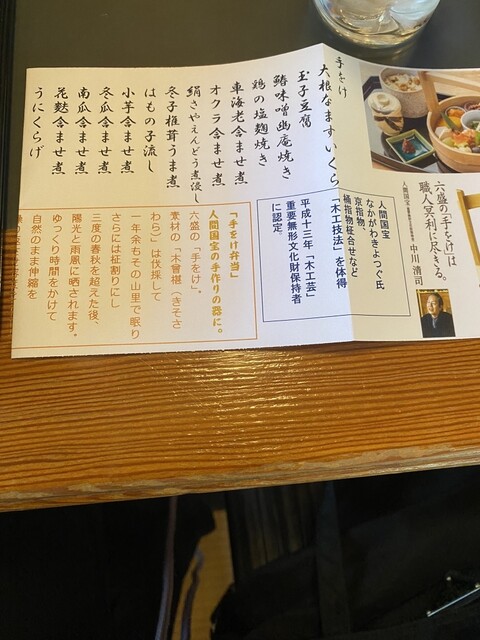 六盛の「手をけ」は
職人冥利に尽きる。
中川清司
手をけ
大根なますいくら
玉子豆腐
鰆味噌幽庵焼き
鶏の塩麹焼き
車海老含ませ煮
オクラ含ませ煮
絹さやえんどう煮浸し
冬子椎茸うま煮
はもの子流し
小芋含ませ煮
冬瓜含ませ煮
南瓜含ませ煮
花麩含ませ煮
うにくらげ
人間国宝
なかがわきよつぐ氏
京指物、
桶指物柾合せなど
「木工技法」を体得
平成十三年「木工芸」
重要無形文化財保持者
に認定
「手をけ弁当」
人間国宝の手作りの器に。
六盛の「手をけ」。
素材の「木曾椹（きそさ
わら）」は伐採して
一年余もその山里で眠り
さらには柾割りにし
三度の春秋を超えた後、
陽光と雨風に晒されます。
ゆっくり時間をかけて
自然のまま伸縮を